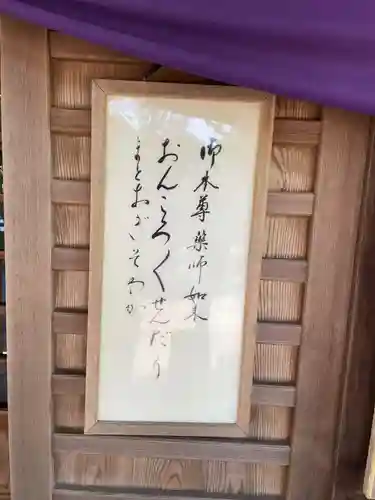 御本尊 薬師如来
おんころころ せんだり
まとおぎ そわか